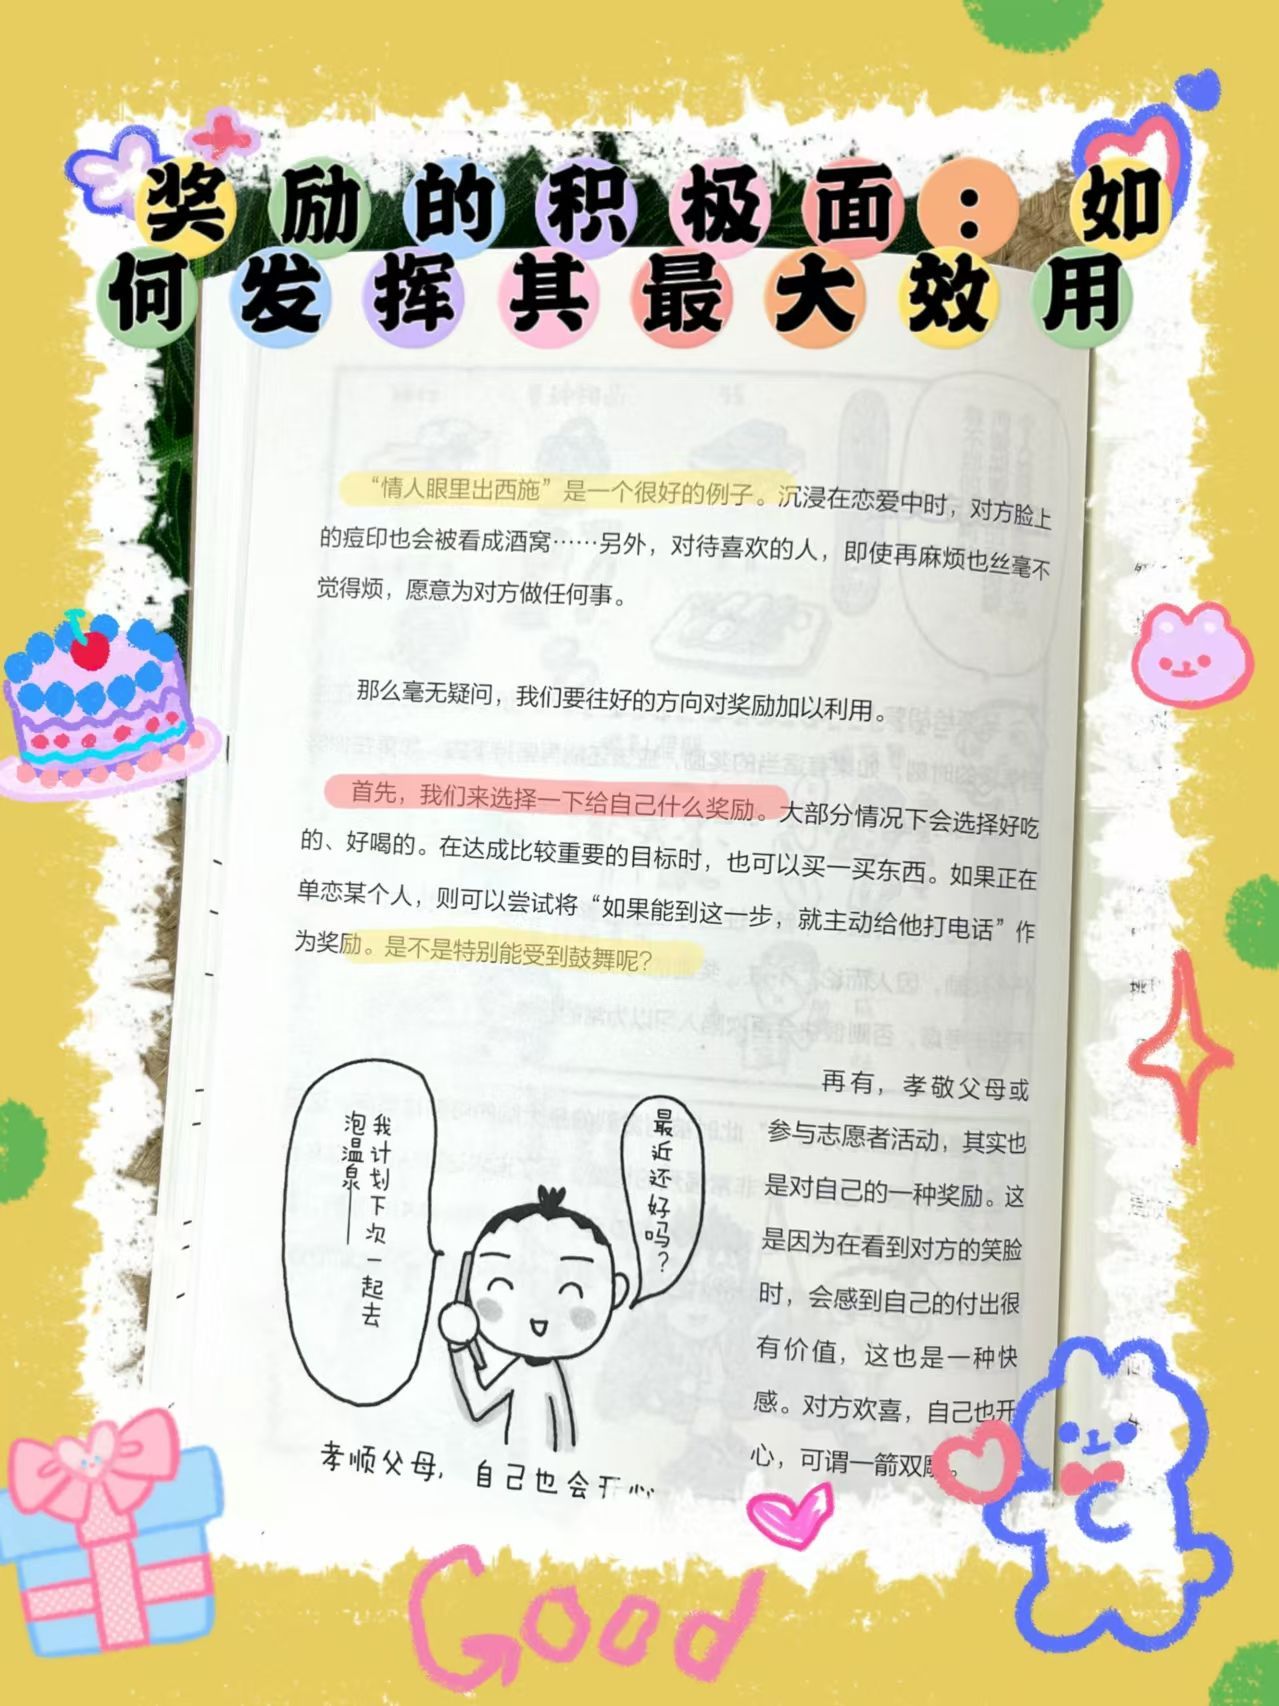 奖励的积极面：如
何发挥其最大效用
“情人眼里出西施”是一个很好的例子。沉浸在恋爱中时，对方脸上
的痘印也会被看成酒窝……另外，对待喜欢的人，即使再麻烦也丝毫不
觉得烦，愿意为对方做任何事。
那么毫无疑问，我们要往好的方向对奖励加以利用。
首先，我们来选择一下给自己什么奖励。大部分情况下会选择好吃
的、好喝的。在达成比较重要的目标时，也可以买一买东西。如果正在
单恋某个人，则可以尝试将“如果能到这一步，就主动给他打电话”作
为奖励。是不是特别能受到鼓舞呢？
再有，孝敬父母或
参与志愿者活动，其实也
是对自己的一种奖励。这
是因为在看到对方的笑脸
时，会感到自己的付出很
有价值，这也是一种快
感。对方欢喜，自己也开
心，可谓一箭双雕。
最近还好吗？
我计划下次一起去
泡温泉——
孝顺父母，自己也会开心
Good